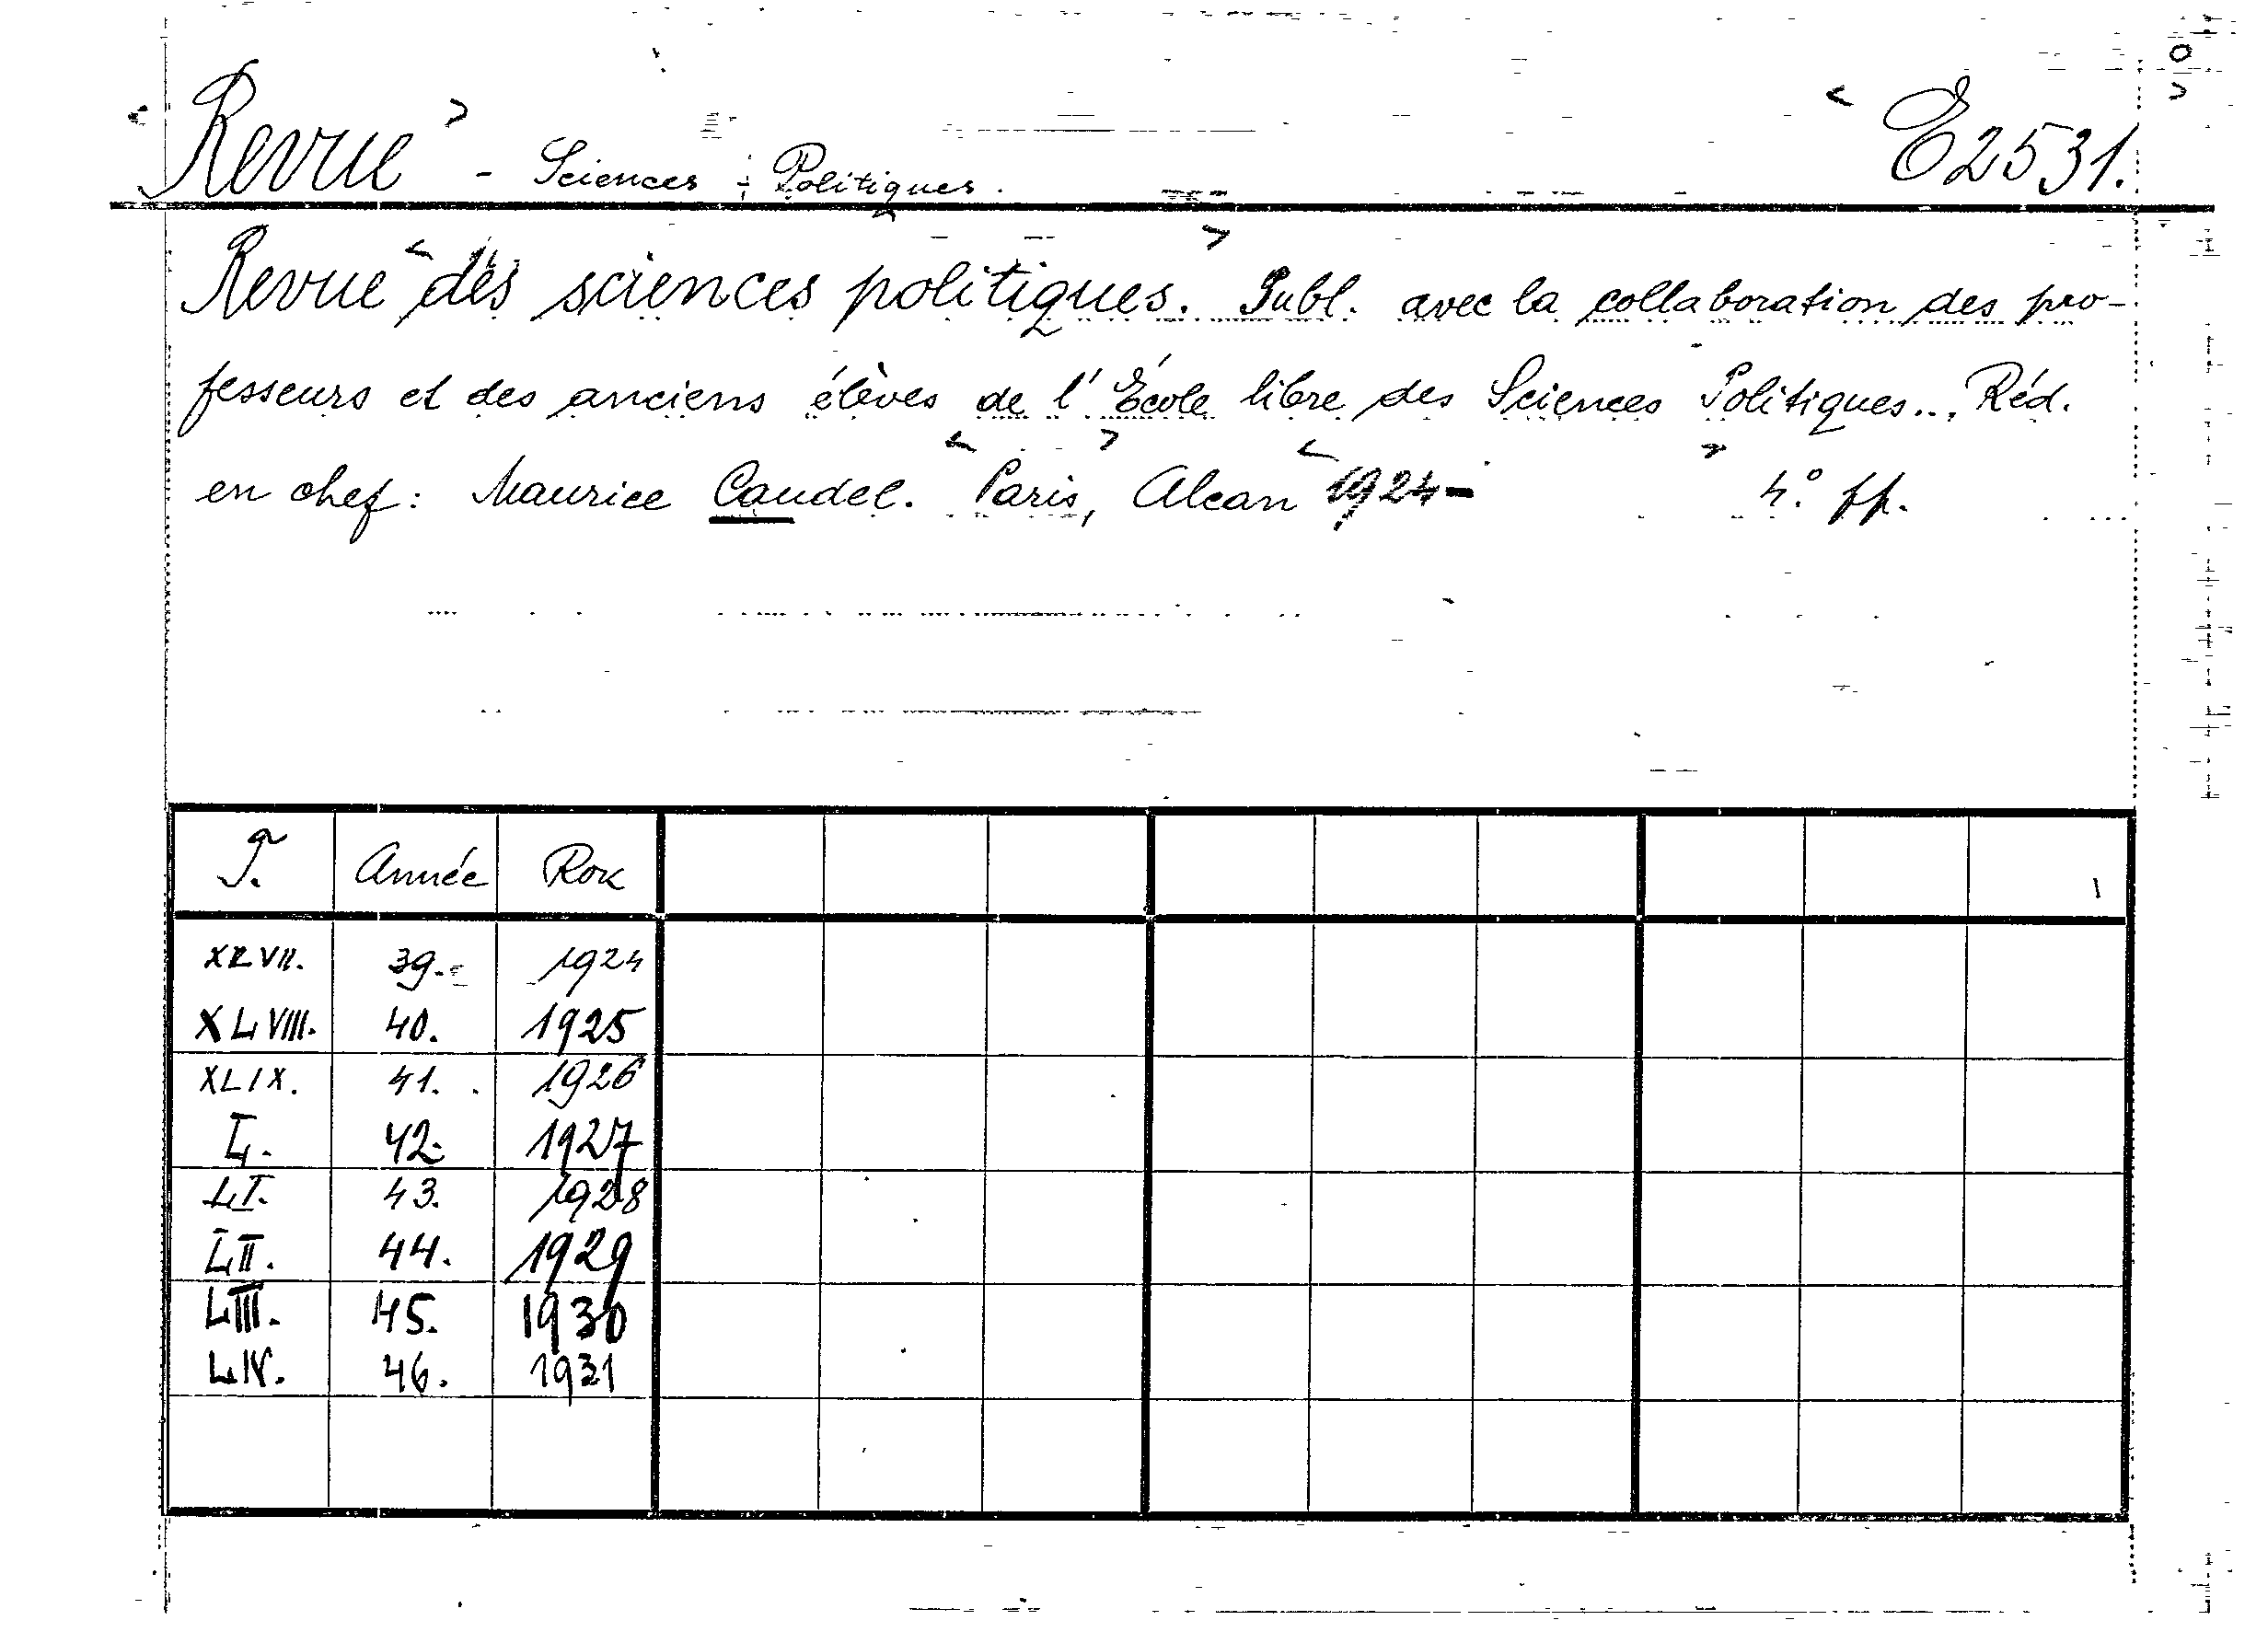 Revue - Sciences - Politiques. E2531.
Revue des sciences politiques. Publ. avec la collaboration des pro-
fesseurs et des anciens élèves de l'École libre des Sciences Politiques... Réd.
en chef: Maurice Caudel. Paris, Alcan 1924- 4° ff.
T. Année Rok
XLVII. 39. 1924
XLVIII. 40. 1925
XLIX. 41. 1926
L. 42. 1927
LI. 43. 1928
LII. 44. 1929
LIII. 45. 1930
LIV. 46. 1931